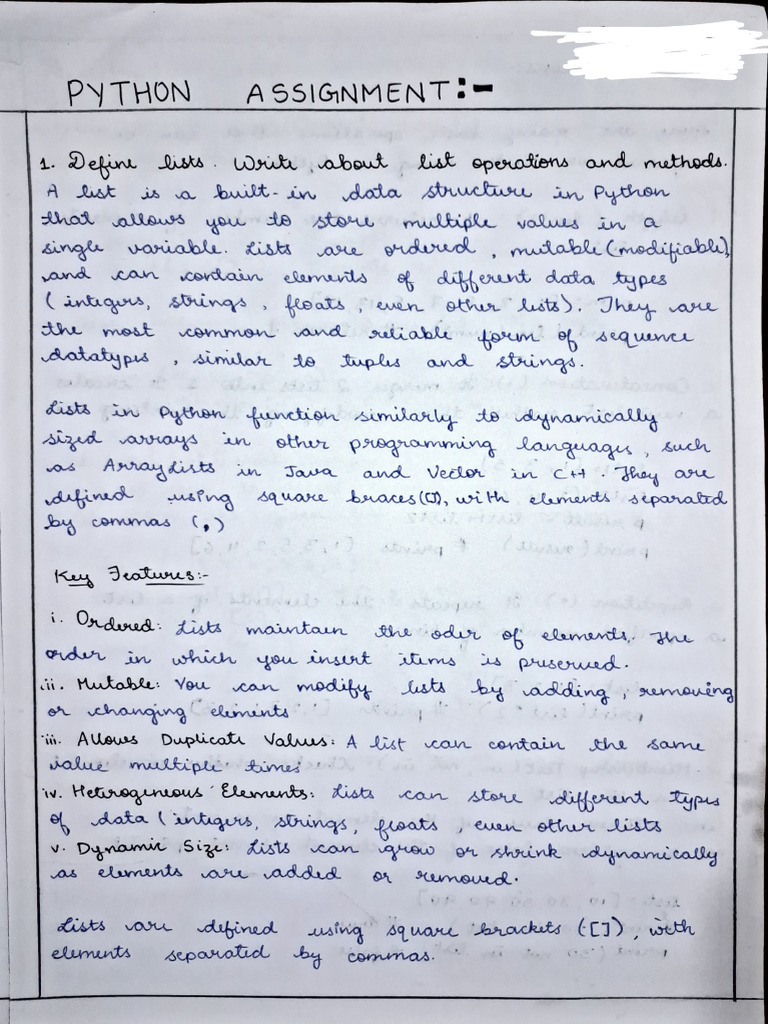 PYTHON ASSIGNMENT:-
1. Define lists. Write about list operations and methods.
A list is a built-in data structure in Python
that allows you to store multiple values in a
single variable. Lists are ordered, mutable (modifiable),
and can contain elements of different data types
(integers, strings, floats, even other lists). They are
the most common and reliable form of sequence
datatypes, similar to tuples and strings.
Lists in Python function similarly to dynamically
sized arrays in other programming languages, such
as ArrayLists in Java and Vector in C++. They are
defined using square braces([]), with elements separated
by commas (,)
Key Features:-
i. Ordered: Lists maintain the oder of elements. The
order in which you insert items is preserved.
ii. Mutable: You can modify lists by adding, removing
or changing elements
iii. Allows Duplicate Values: A list can contain the same
value multiple times
iv. Heterogeneous Elements: Lists can store different types
of data (integers, strings, floats, even other lists
v. Dynamic Size: Lists can grow or shrink dynamically
as elements are added or removed.
Lists are defined using square brackets ([]), with
elements separated by commas.